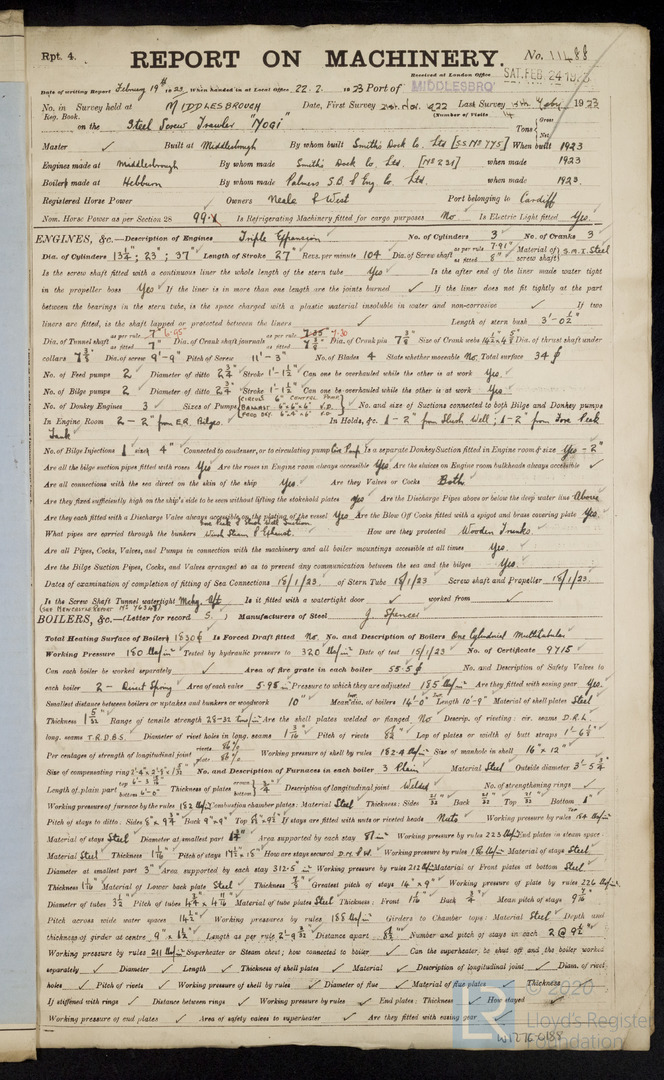 Rpt. 4.
REPORT ON MACHINERY.
No. 11488
Received at London Office SAT. FEB. 24 1923
Date of writing Report February 19th 1923 When handed in at Local Office 22. 2. 1923 Port of MIDDLESBRO'
No. in Survey held at MIDDLESBROUGH Date, First Survey Last Survey 1923
Reg. Book. (Number of Visits
on the Steel Screw Trawler "YOGI" Tons { Gross Net
Master ✓ Built at Middlesbrough By whom built Smith's Dock Co. Ltd [S.S. No 775] When built 1923
Engines made at Middlesbrough By whom made Smith's Dock Co. Ltd. [No 231] when made 1923
Boilers made at Hebburn By whom made Palmers S.B. & Eng. Co. Ltd. when made 1923.
Registered Horse Power Owners Neale & West Port belonging to Cardiff
Nom. Horse Power as per Section 28 99. Is Refrigerating Machinery fitted for cargo purposes No Is Electric Light fitted Yes.
ENGINES, &c.—Description of Engines Triple Expansion No. of Cylinders 3 No. of Cranks 3
Dia. of Cylinders 13¼"; 23"; 37" Length of Stroke 27" Revs. per minute 104 Dia. of Screw shaft as per rule 7.91" as fitted 8" Material of screw shaft S.M.I. Steel
Is the screw shaft fitted with a continuous liner the whole length of the stern tube Yes Is the after end of the liner made water tight
in the propeller boss Yes If the liner is in more than one length are the joints burned ✓ If the liner does not fit tightly at the part
between the bearings in the stern tube, is the space charged with a plastic material insoluble in water and non-corrosive ✓ If two
liners are fitted, is the shaft lapped or protected between the liners ✓ Length of stern bush 3'-0½"
Dia. of Tunnel shaft as per rule 7" 6.95 as fitted 7" Dia. of Crank shaft journals as per rule 7.35 7.30 as fitted 7⅜" Dia. of Crank pin 7⅜" Size of Crank webs Dia. of thrust shaft under
collars 7⅜" Dia. of screw 9'-9" Pitch of Screw 11'-3" No. of Blades 4 State whether moveable No. Total surface 34 ϕ
No. of Feed pumps 2 Diameter of ditto 2¾" Stroke 1'-1½" Can one be overhauled while the other is at work Yes.
No. of Bilge pumps 2 Diameter of ditto 2¾" Stroke 1'-1½" Can one be overhauled while the other is at work Yes.
No. of Donkey Engines 3 Sizes of Pumps No. and size of Suctions connected to both Bilge and Donkey pumps
In Engine Room 2 - 2" from E.R. Bilges. In Holds, &c. 1-2" from Slush Well; 1-2" from Fore Peak
Tank
No. of Bilge Injections 1 sizes 4" Connected to condenser, or to circulating pump Cir. Pump Is a separate Donkey Suction fitted in Engine room & size Yes - 2"
Are all the bilge suction pipes fitted with roses Yes Are the roses in Engine room always accessible Yes Are the sluices on Engine room bulkheads always accessible ✓
Are all connections with the sea direct on the skin of the ship Yes Are they Valves or Cocks Both
Are they fixed sufficiently high on the ship's side to be seen without lifting the stokehold plates yes Are the Discharge Pipes above or below the deep water line Above
Are they each fitted with a Discharge Valve always accessible on the plating of the vessel Yes Are the Blow Off Cocks fitted with a spigot and brass covering plate Yes.
What pipes are carried through the bunkers Fore Peak & Slush Well Suction. Winch Steam & Exhaust. How are they protected Wooden Trunks.
Are all Pipes, Cocks, Valves, and Pumps in connection with the machinery and all boiler mountings accessible at all times Yes.
Are the Bilge Suction Pipes, Cocks, and Valves arranged so as to prevent any communication between the sea and the bilges Yes.
Dates of examination of completion of fitting of Sea Connections 18/1/23. of Stern Tube 18/1/23 Screw shaft and Propeller 18/1/23.
Is the Screw Shaft Tunnel watertight Mchy. Aft Is it fitted with a watertight door ✓ worked from ✓
(SEE NEWCASTLE REPORT No 76348)
BOILERS, &c.—(Letter for record S.) Manufacturers of Steel J. Spencer
Total Heating Surface of Boilers 1630 ϕ Is Forced Draft fitted No. No. and Description of Boilers One Cylindrical Multitubular
Working Pressure 180 lbs/in² Tested by hydraulic pressure to 320 lbs/in² Date of test 15/1/23 No. of Certificate 9715
Can each boiler be worked separately ✓ Area of fire grate in each boiler 55.5 ϕ No. and Description of Safety Valves to
each boiler 2 - Direct Spring Area of each valve 5.95 in² Pressure to which they are adjusted 185 lbs/in² Are they fitted with easing gear Yes.
Smallest distance between boilers or uptakes and bunkers or woodwork 10" Mean dia. of boilers 14'-0" Length 10'-9" Material of shell plates Steel
Thickness 1 5/32" Range of tensile strength 28-32 tons/in² Are the shell plates welded or flanged No Descrip. of riveting: cir. seams D.R.L.
long. seams T.R.D.B.S. Diameter of rivet holes in long. seams 1 3/16" Pitch of rivets Lap of plates or width of butt straps
Per centages of strength of longitudinal joint rivets 86% plate 86% Working pressure of shell by rules 182.4 lbs/in² Size of manhole in shell 16" x 12"
Size of compensating ring No. and Description of Furnaces in each boiler 3 Plain Material Steel Outside diameter
Length of plain part top bottom 6'-0" Thickness of plates crown bottom ¾" Description of longitudinal joint Welded No. of strengthening rings ✓
Working pressure of furnace by the rules 182 lbs/in² Combustion chamber plates: Material Steel Thickness: Sides 21/32" Back 21/32" Top 21/32" Bottom 1"
Pitch of stays to ditto: Sides Back 9" x 9" Top If stays are fitted with nuts or riveted heads Nuts Working pressure by rules 184 lbs/in²
Material of stays Steel Diameter at smallest part Area supported by each stay 81 in² Working pressure by rules 223 lbs/in² End plates in steam space:
Material Steel Thickness 1 1/16" Pitch of stays 17½" x 18" How are stays secured D.N. & W. Working pressure by rules 186 lbs/in² Material of stays Steel
Diameter at smallest part 3" Area supported by each stay 312.5 in² Working pressure by rules 212 lbs/in² Material of Front plates at bottom Steel
Thickness 1 1/16" Material of Lower back plate Steel Thickness ⅞" Greatest pitch of stays 14" x 9" Working pressure of plate by rules 226 lbs/in²
Diameter of tubes 3½" Pitch of tubes Material of tube plates Steel Thickness: Front 1 1/16" Back ¾" Mean pitch of stays
Pitch across wide water spaces 14½" Working pressures by rules 188 lbs/in² Girders to Chamber tops: Material Steel Depth and
thickness of girder at centre 9" x 1½" Length as per rule Distance apart 8½" Number and pitch of stays in each 2 @ 9½"
Working pressure by rules 211 lbs/in² Superheater or Steam chest; how connected to boiler ✓ Can the superheater be shut off and the boiler worked
separately ✓ Diameter ✓ Length ✓ Thickness of shell plates ✓ Material ✓ Description of longitudinal joint ✓ Diam. of rivet
holes ✓ Pitch of rivets ✓ Working pressure of shell by rules ✓ Diameter of flue ✓ Material of flue plates ✓ Thickness ✓
If stiffened with rings ✓ Distance between rings ✓ Working pressure by rules ✓ End plates: Thickness ✓ How stayed ✓
Working pressure of end plates ✓ Area of safety valves to superheater ✓ Are they fitted with easing gear ✓
© 2020
Lloyd's Register
Foundation
W1276-0188